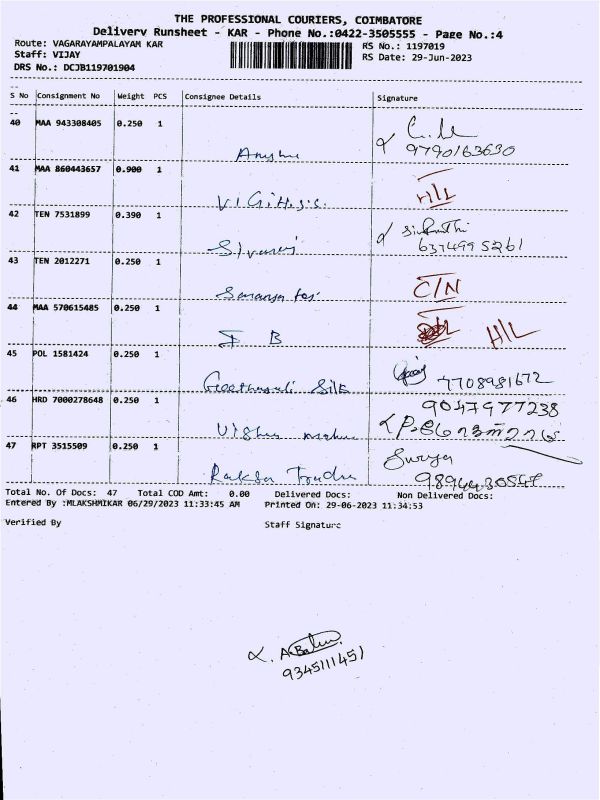 THE PROFESSIONAL COURIERS, COIMBATORE
Delivery Runsheet - KAR - Phone No.:0422-3505555 - Page No.:4
Route: VAGARAYAMPALAYAM KAR
RS No.: 1197019
Staff: VIJAY
RS Date: 29-Jun-2023
DRS No.: DCJB119701904
S No Consignment No Weight PCS Consignee Details Signature
40 MAA 943308405 0.250 1
9790163630
41 MAA 860443657 0.900 1
H/L
42 TEN 7531899 0.390 1
6374995261
43 TEN 2012271 0.250 1
C/N
44 MAA 570615485 0.250 1
H/L
45 POL 1581424 0.250 1
Geethanjali Silk 7708981672
46 HRD 7000278648 0.250 1
9047977238
47 RPT 3515509 0.250 1
Surya
Total No. Of Docs: 47 Total COD Amt: 0.00 Delivered Docs: Non Delivered Docs:
Entered By :MLAKSHMIKAR 06/29/2023 11:33:45 AM Printed On: 29-06-2023 11:34:53
Verified By Staff Signature
9345111451